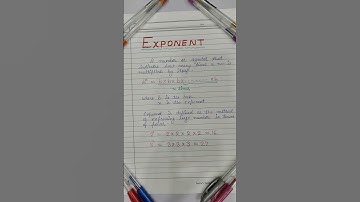 EXPONENT
A number or symbol that
indicates how many times a num is
multiplied by itself.
bˣ = b×b×b×b.........×b
x times
where b is the base
x is the exponent
Exponent is defined as the method
of expressing large number in terms
of power.
= 2 × 2 × 2 × 2 = 16
= 3 × 3 × 3 = 27